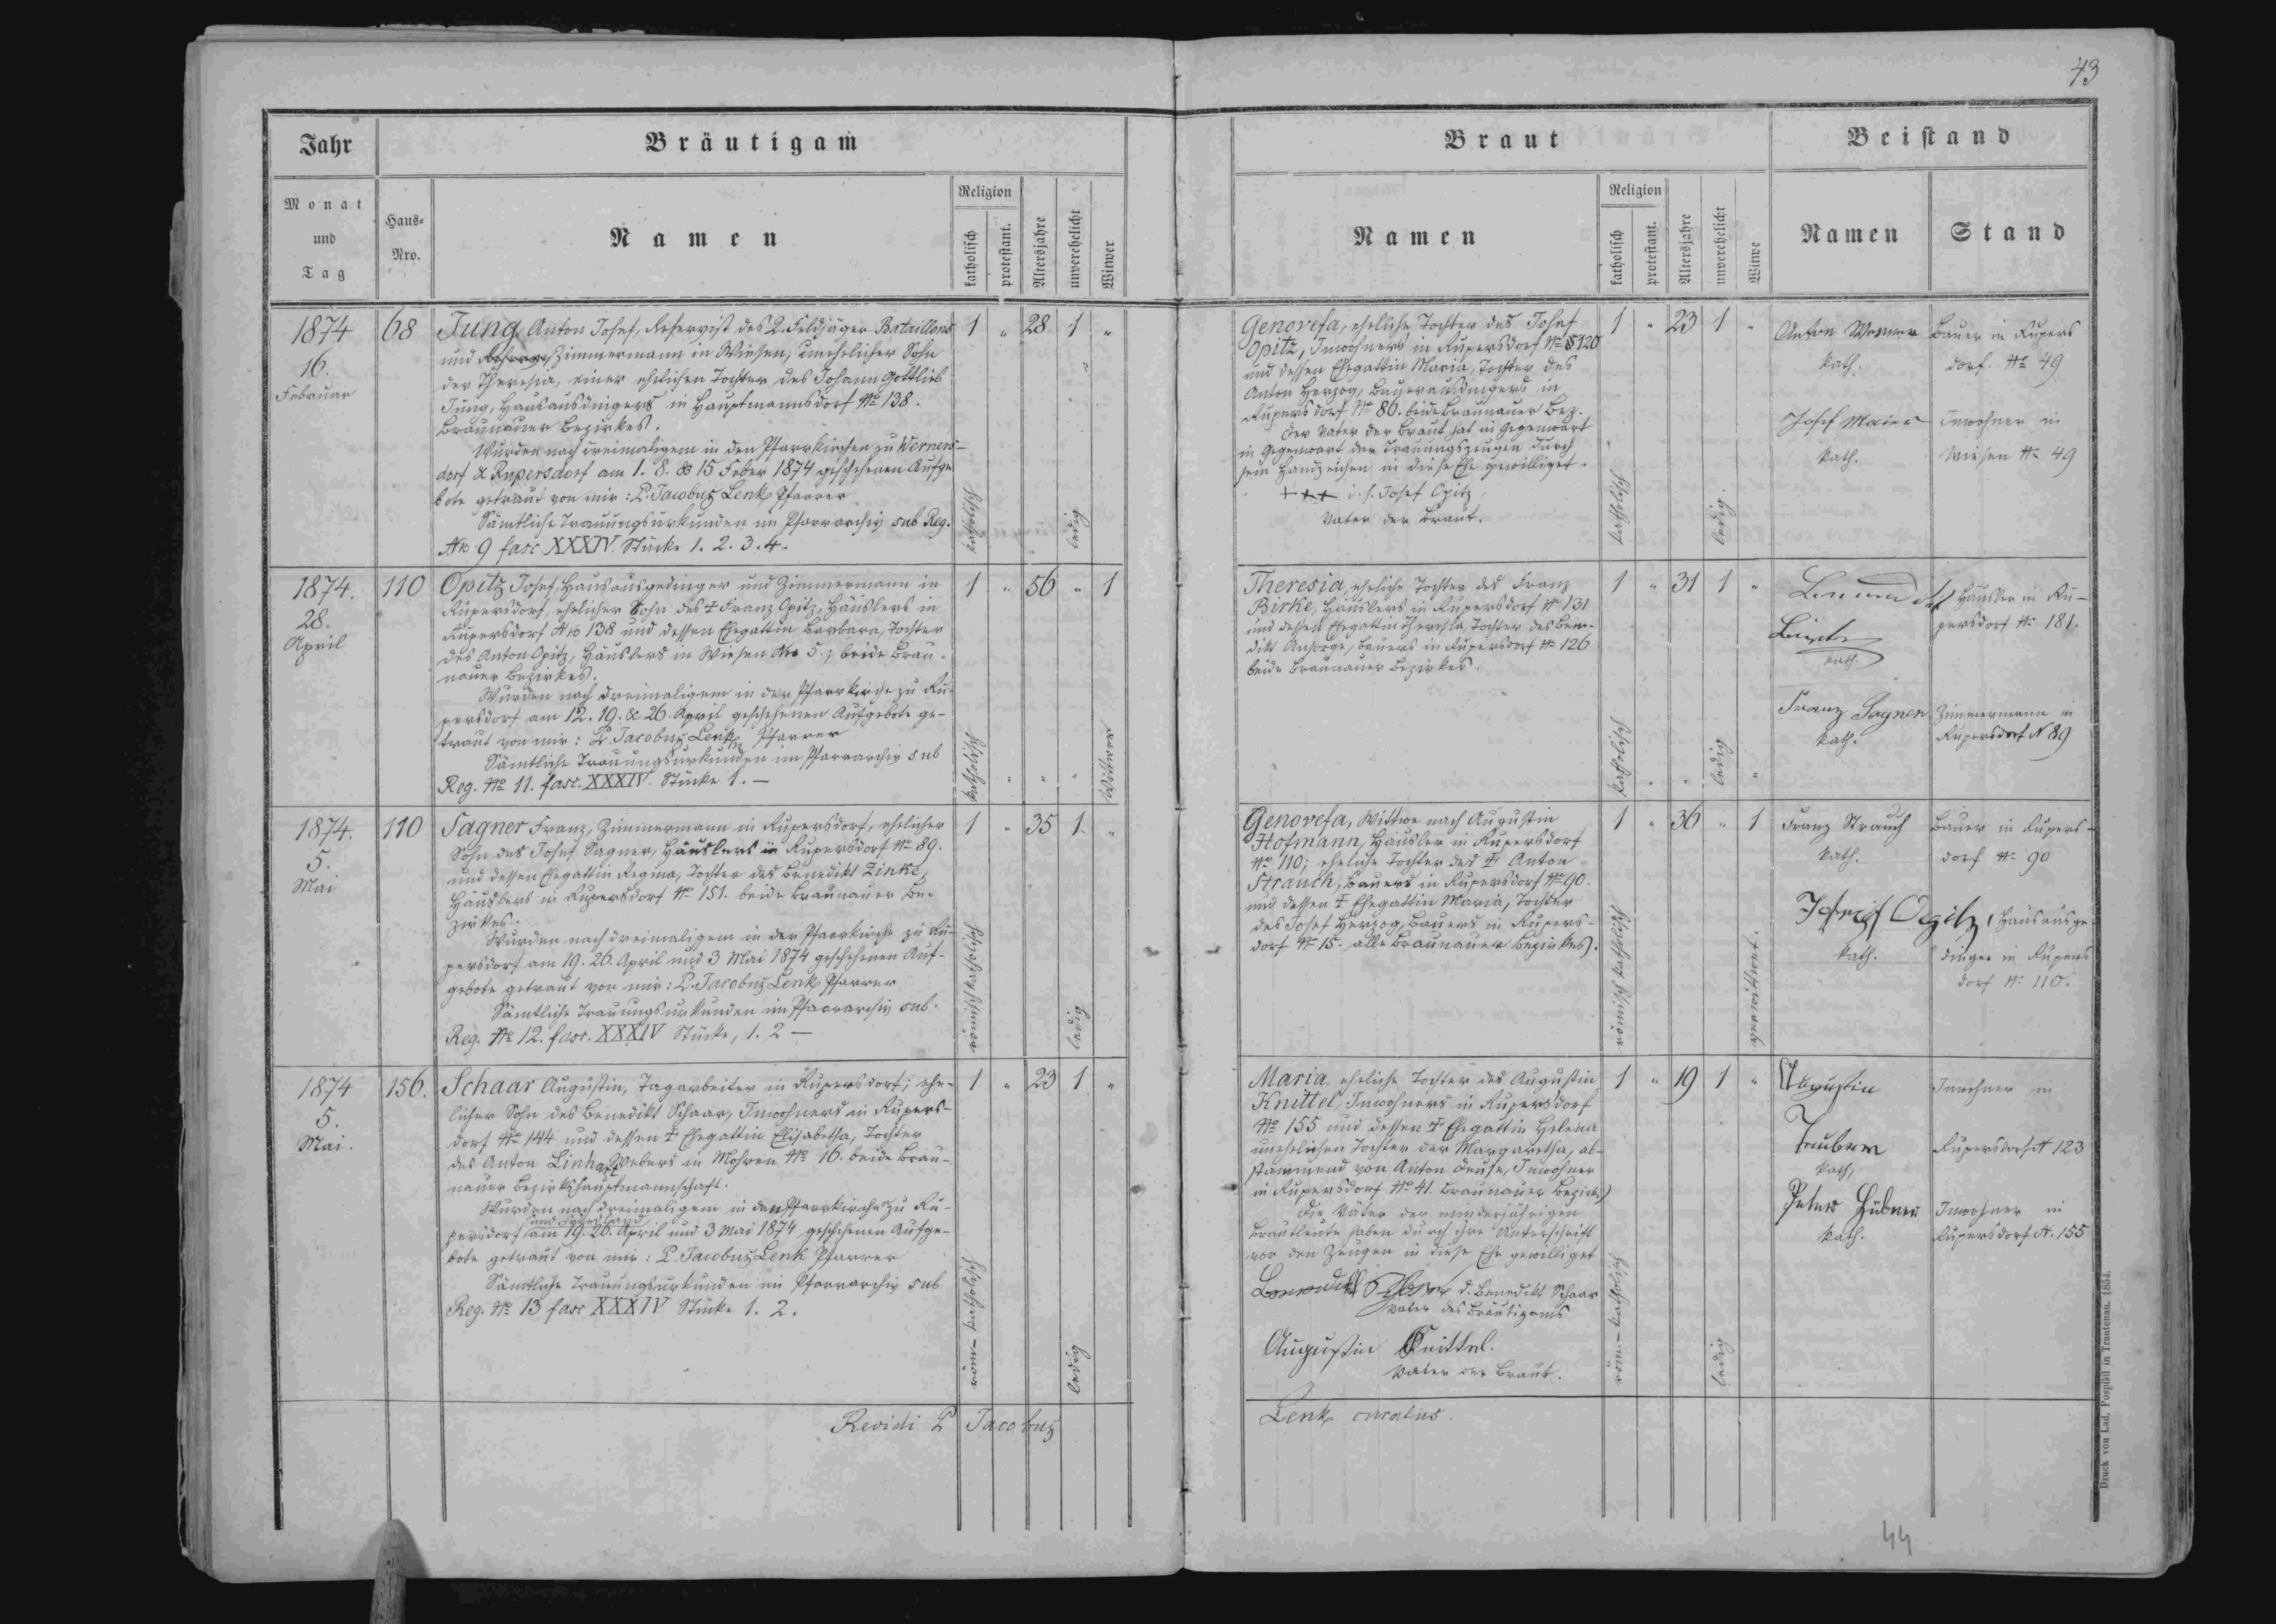 43
Jahr
Monat
und
Tag
Haus-
Nro.
Bräutigam
Namen
Religion
katholisch
protestant.
Altersjahre
unverehelicht
Witwer
Braut
Namen
Religion
katholisch
protestant.
Altersjahre
unverehelicht
Witwe
Beistand
Namen
Stand
1874
16.
Februar
68
Jung Anton Josef, Reservist des 2. Feldjäger Bataillons
und Zimmermann in Wiesen, unehelicher Sohn
der Theresia, einer ehelichen Tochter des Johann Gottlieb
Jung, Hausausdingers in Hauptmannsdorf No 138.
Braunauer Bezirkes.
Wurden nach dreimaligem in den Pfarrkirchen zu Werners-
dorf & Rupersdorf am 1. 8. & 15 Feber 1874 geschehenen Aufge
bote getraut von mir: P. Jacobus Lenk Pfarrer
Sämtliche Trauungsurkunden im Pfarrarchiv sub Reg.
No 9 fasc XXXIV. Stücke 1. 2. 3. 4.
1 " 28 1 "
katholisch
ledig
Genovefa, eheliche Tochter des Josef
Opitz, Inwohners in Rupersdorf No 120
und dessen Ehegattin Maria, Tochter des
Anton Herzog, Bauerausdingers in
Rupersdorf No 86. beide Braunauer Bez.
Der Vater der Braut hat in Gegenwart
in Gegenwart der Trauungszeugen durch
sein Handzeichen in diese Ehe gewilliget.
+++ Josef Opitz,
Vater der Braut.
1 " 23 1 "
katholisch
ledig.
Anton
kath.
Bauer in Rupers
dorf. No 49
Josef Maier
kath.
Inwohner in
Wiesen No 49
1874.
28.
April
110
Opitz Josef, Hausausgedinger und Zimmermann in
Rupersdorf, ehelicher Sohn des † Franz Opitz, Häuslers in
Rupersdorf No 138 und dessen Ehegattin Barbara, Tochter
des Anton Opitz, Häuslers in Wiesen No 5.; beide Brau-
nauer Bezirkes.
Wurden nach dreimaligem in der Pfarrkirche zu Ru-
persdorf am 12. 19. & 26. April geschehenen Aufgebote ge-
traut von mir: P. Jacobus Lenk Pfarrer
Sämtliche Trauungsurkunden im Pfarrarchiv sub
Reg. No 11. fasc. XXXIV. Stücke 1. —
1 " 56 " 1
katholisch
Wittwer
Theresia, eheliche Tochter des Franz
Birke, Häuslers in Rupersdorf No 131
und dessen Ehegattin Theresia, Tochter des Bene-
dikt Ansorge, Bauers in Rupersdorf No 126
beide Braunauer Bezirkes.
1 " 31 1 "
katholisch
ledig
kath.
Häusler in Ru-
persdorf No 181.
Franz Sagner
kath.
Zimmermann in
Rupersdorf N 89
1874.
5.
Mai
110
Sagner Franz, Zimmermann in Rupersdorf, ehelicher
Sohn des Josef Sagner, Häuslers in Rupersdorf No 89.
und dessen Ehegattin Regina, Tochter des Benedikt Zinke,
Häuslers in Rupersdorf No 151. beide Braunauer Be-
zirkes.
Wurden nach dreimaligem in der Pfarrkirche zu Ru-
persdorf am 19. 26. April und 3 Mai 1874 geschehenen Auf-
gebote getraut von mir: P. Jacobus Lenk Pfarrer
Sämtliche Trauungsurkunden im Pfarrarchiv sub.
Reg. No 12. fasc. XXXIV Stücke, 1. 2 —
1 " 35 1. "
römisch katholisch
ledig
Genovefa, Wittwe nach Augustin
Hofmann, Häusler in Rupersdorf
No 110; eheliche Tochter des † Anton
Strauch, Bauers in Rupersdorf No 90.
und dessen † Ehegattin Maria, Tochter
des Josef Herzog, Bauers in Rupers-
dorf No 15. alle Braunauer Bezirkes.
1 " 36 " 1
römisch katholisch
verwittwet.
Franz Strauch
kath.
Bauer in Rupers-
dorf No 90
Josef Opitz,
kath.
Hausausge
dinger in Rupers
dorf No 110.
1874
5.
Mai.
156.
Schaar Augustin, Tagarbeiter in Rupersdorf; ehe-
licher Sohn des Benedikt Schaar, Inwohners in Rupers-
dorf No 144 und dessen † Ehegattin Elisabetha, Tochter
des Anton Linhart Webers in Mohren No 16. beide Brau-
nauer Bezirkshauptmannschaft.
Wurden nach dreimaligem in den Pfarrkirchen zu Ru-
persdorf am 19. 26. April und 3 Mai 1874 geschehenen Aufge-
bote getraut von mir: P. Jacobus Lenk Pfarrer
Sämtliche Trauungsurkunden im Pfarrarchiv sub
Reg. No 13 fasc XXXIV Stücke 1. 2.
1 " 23 1 "
röm- katholisch
ledig
Maria, eheliche Tochter des Augustin
Knittel, Inwohners in Rupersdorf
No 155 und dessen † Ehegattin Helena
unehelichen Tochter der Margaretha, ab-
stammend von Anton Teuse, Inwohner
in Rupersdorf No 41. Braunauer Bezirks)
Die Väter der minderjährigen
Brautleute haben durch ihre Unterschrift
vor den Zeugen in diese Ehe gewilliget
Benedikt Schaar d. Benedikt Schaar
Vater des Bräutigams
Augustin Knittel.
Vater der Braut.
1 " 19 1 "
röm- katholisch
ledig
Augustin
Teuber
kath,
Inwohner in
Rupersdorf N 123
Peter Hübner
kath.
Inwohner in
Rupersdorf N. 155
Revidi P Jacobus Lenk curatus.
44
Druck von Lad. Pospišil in Trautenau. 1854.